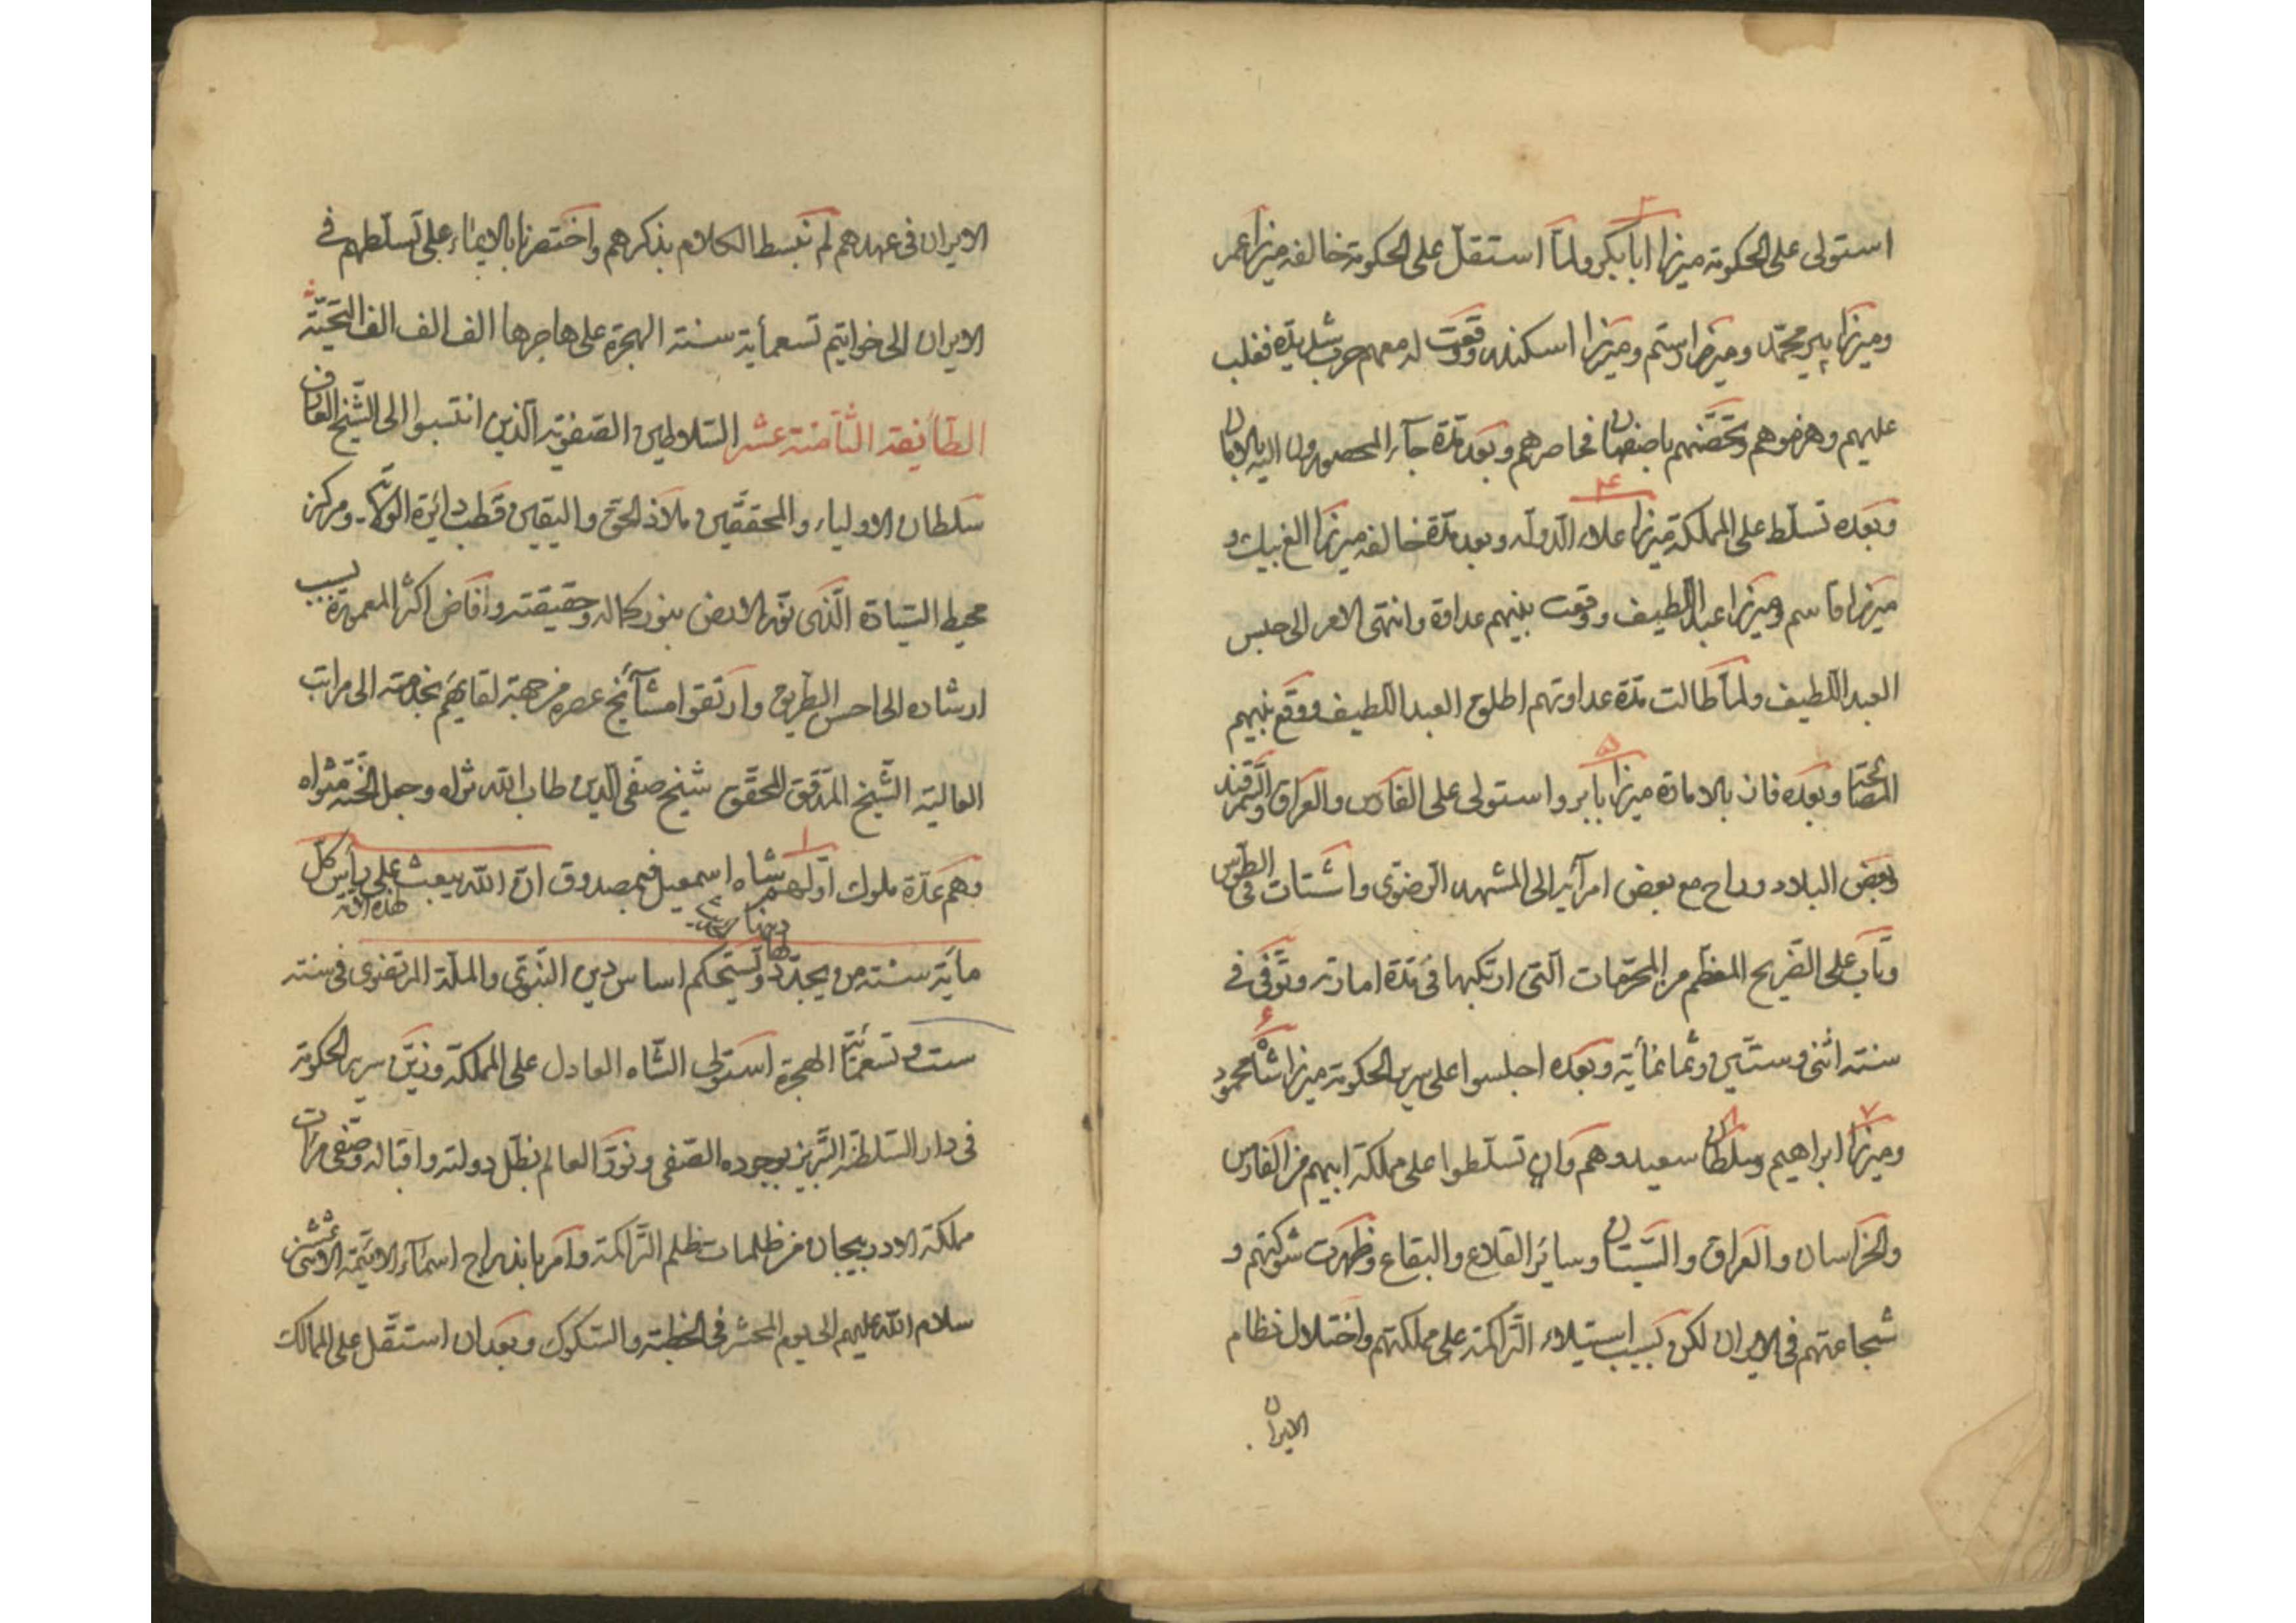 استولى على الحكومة ميرزا ابا بكر ولما استقل على الحكومة خالفه ميرزا عمر
وميرزا پير محمد وميرزا رستم وميرزا اسكندر ووقعت له معهم حرب شديدة فغلب
عليهم وهزموهم وتحصنهم باصفهان فحاصرهم وبعد مدة جآء المحصورون اليه بالامان
وبعده تسلط على المملكة ميرزا علاء الدولة وبعد مدة خالفه ميرزا الغ بيك و
ميرزا قاسم وميرزا عبد اللطيف ووقعت بينهم عداوة وانتهى الامر الى حبس
العبد اللطيف ولما طالت مدة عداوتهم اطلق العبد اللطيف ووقع بينهم
المصالحة وبعده فاز بالامارة ميرزا بابر واستولى على الفارس والعراق والسمرقند
وبعض البلاد وراح مع بعض امرآئه الى المشهد الرضوى واشتات فى الطوس
وتاب على الضريح المعظم من المحرمات التى ارتكبها فى مدة امارته وتوفى فى
سنة اثنى وستين وثمانمأية وبعده اجلسوا على سرير الحكومة ميرزا شاه محمود
وميرزا ابراهيم وسلطان سعيد وهم وان تسلطوا على مملكة ابيهم من الفارس
والخراسان والعراق والسيستان وسائر القلاع والبقاع وظهرت شوكتهم و
شجاعتهم فى الايران لكن بسبب استيلاء التراكمة على مملكتهم واختلال نظام
الايران
الايران فى عهدهم لم نبسط الكلام بذكرهم واختصرنا بالايماء على تسلطهم فى
الايران الى خواتيم تسعمأية سنة الهجرة على هاجرها الف الف الف التحية
الطائفة الثامنة عشر السلاطين الصفوية الذين انتسبوا الى الشيخ العارف
سلطان الاولياء والمحققين ملاذ الحق واليقين قطب دائرة الولاية ومركز
محيط السيادة الذى نور الارض بنور كماله وحقيقته وافاض اكثر المعمورة بسبب
ارشاده الى احسن الطريق وارتقوا مشآئخ عصره من جهة لقايهم بخدمته الى مراتب
العالية الشيخ المدقق المحقق شيخ صفى الدين طاب الله ثراه وجعل الجنة مثواه
وهم عدة ملوك اولهم شاه اسمعيل فبمصدوق ان الله يبعث على رأس كل
هذه الامة
مأية سنة من يجدد لها دينها وتستحكم اساس دين النبوى والملة المرتضوى فى سنة
ست وتسعمائة الهجرة استولى الشاه العادل على المملكة وزين سرير الحكومة
فى دار السلطنة التبريز بوجوده الصفى ونور العالم بظل دولته واقباله وصفى مرات
مملكة الاذربيجان من ظلمات ظلم التراكمة وامر باندراج اسمآء الائمة الاثنى عشر
سلام الله عليهم الى يوم المحشر فى الخطبة والسكوك وبعد ان استقل على الممالك